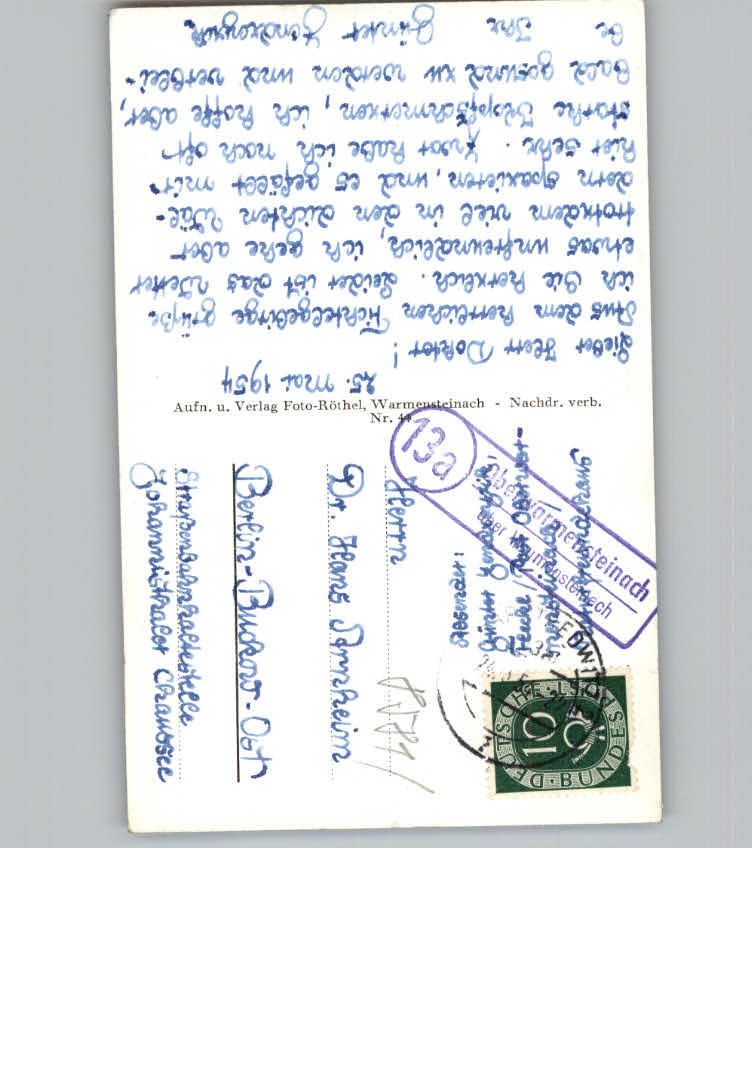 25. Mai 1954
Lieber Herr Doktor!
Aus dem herrlichen Fichtelgebirge grüße
ich Sie herzlich. Leider ist das Wetter
etwas unfreundlich, ich gehe aber
trotzdem viel in den dichten Wäl-
dern spazieren, und es gefällt mir
hier sehr. Zwar habe ich noch oft
starke Kopfschmerzen, ich hoffe aber,
bald gesund zu werden und verblei-
be Ihr Günter
Aufn. u. Verlag Foto-Röthel, Warmensteinach - Nachdr. verb.
Nr. 44
Absender:
Günter
13a
Oberwarmensteinach
über Warmensteinach
DEUTSCHE BUNDESPOST
10
Herrn
Dr. Hans
Berlin-Buckow-Ost
Straßenbahnhaltestelle
Johannisthaler Chaussee